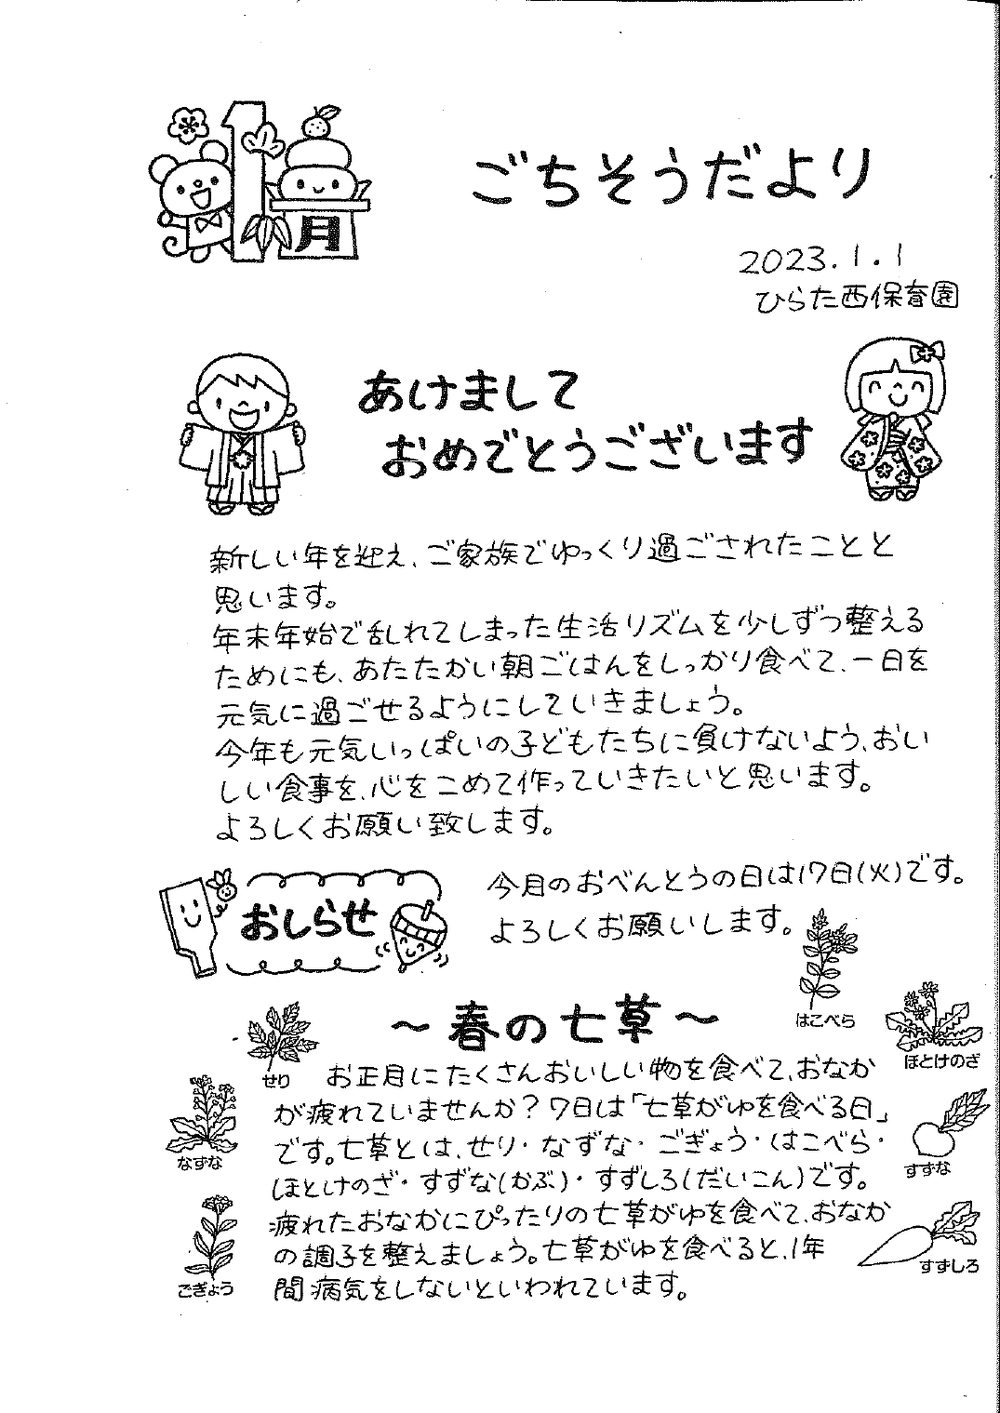 1月
ごちそうだより
2023.1.1
ひらた西保育園
あけまして
おめでとうございます
新しい年を迎え、ご家族でゆっくり過ごされたことと
思います。
年末年始で乱れてしまった生活リズムを少しずつ整える
ためにも、あたたかい朝ごはんをしっかり食べて、一日を
元気に過ごせるようにしていきましょう。
今年も元気いっぱいの子どもたちに負けないよう、おい
しい食事を、心をこめて作っていきたいと思います。
よろしくお願い致します。
おしらせ
今月のおべんとうの日は17日(火)です。
よろしくお願いします。
はこべら
ほとけのざ
～春の七草～
せり
お正月にたくさんおいしい物を食べて、おなか
が疲れていませんか?7日は「七草がゆを食べる日」
です。七草とは、せり・なずな・ごぎょう・はこべら・
ほとけのざ・すずな(かぶ)・すずしろ(だいこん)です。
疲れたおなかにぴったりの七草がゆを食べて、おなか
の調子を整えましょう。七草がゆを食べると、1年
間病気をしないといわれています。
なずな
すずな
ごぎょう
すずしろ